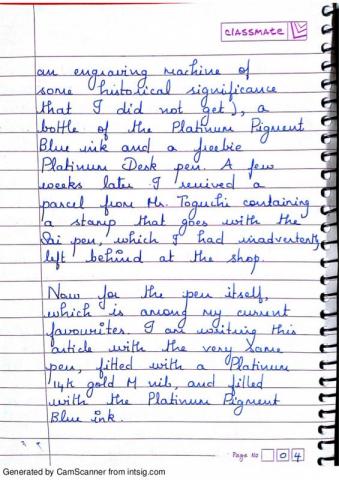 CLASSMATE
an engraving machine of
some historical significance
that I did not get), a
bottle of the Platinum Pigment
Blue ink and a freebie
Platinum Desk pen. A few
weeks later I reived a
parcel from Mr. Toguchi containing
a stamp that goes with the
Sai pen, which I had inadvertently
left behind at the shop.
Now for the pen itself,
which is among my current
favourites. I am writing this
article with the very same
pen, fitted with a Platinum
14k gold M nib, and filled
with the Platinum Pigment
Blue ink.
Page No 04
Generated by CamScanner from intsig.com